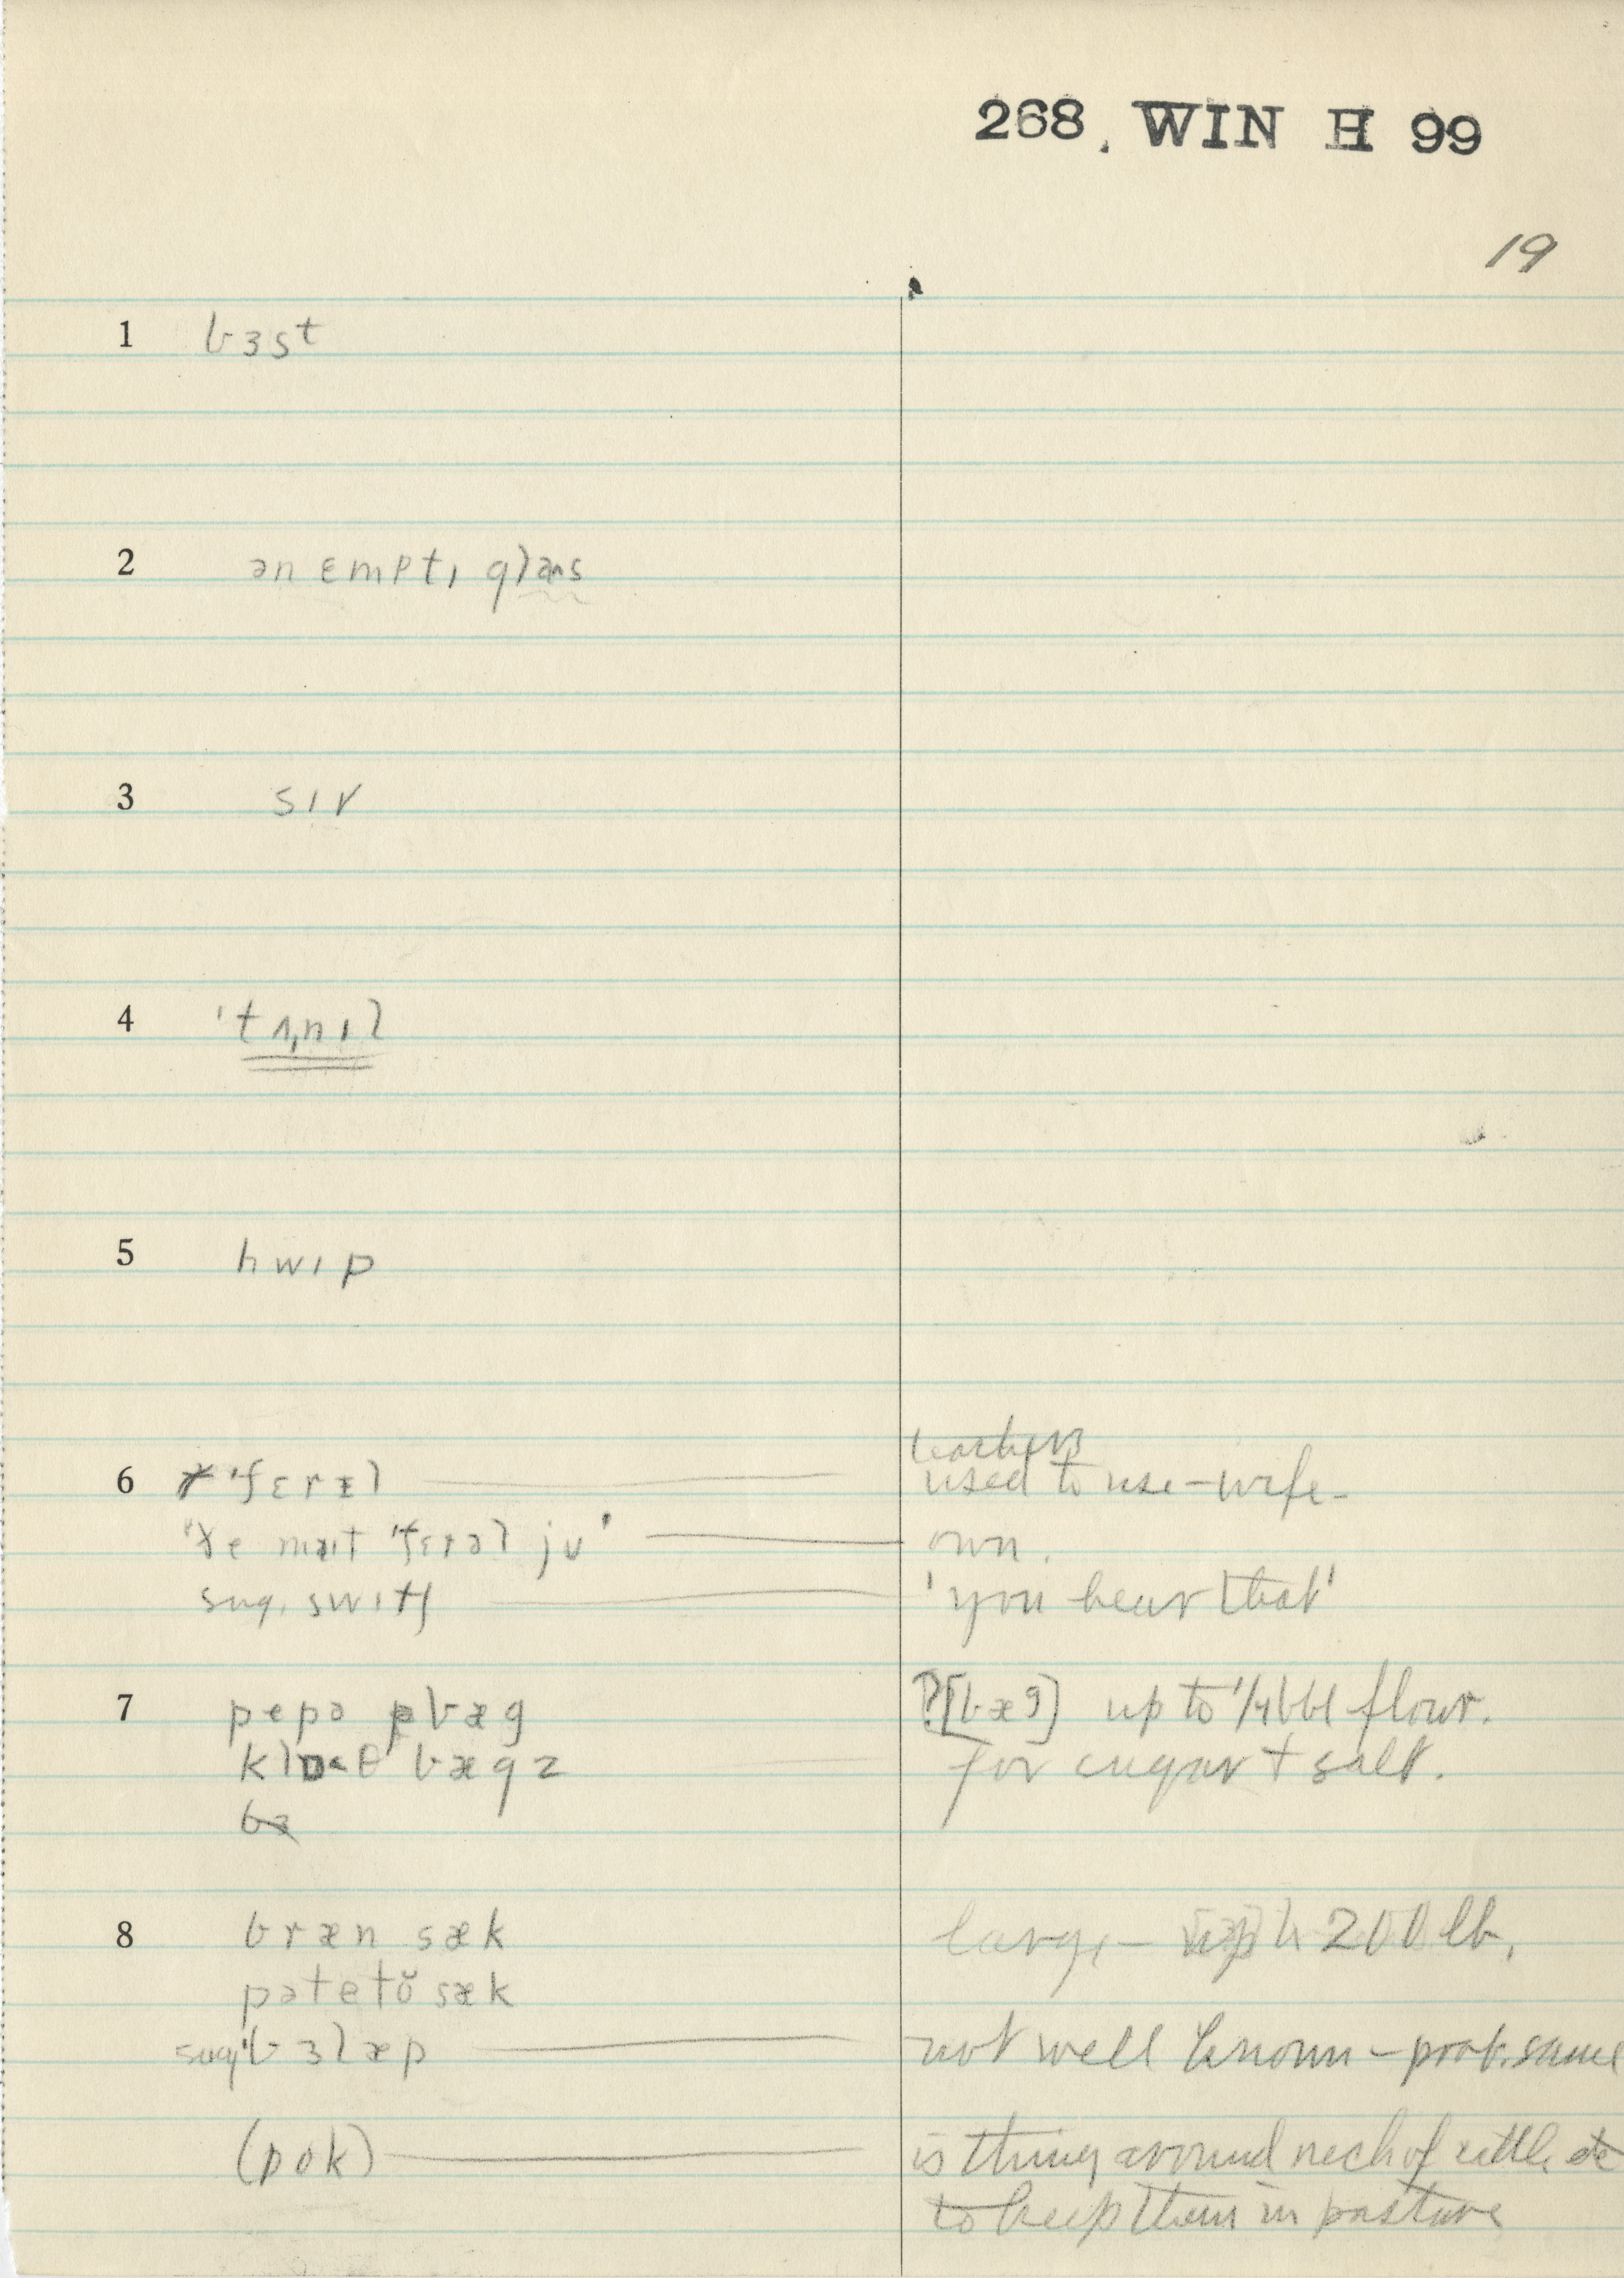 268. WIN H 99
19
1 bɜst
2 ən ɛmptɪ glas
3 sɪv
4 'tʌnɪl
5 hwɪp
teachers
6 'fɛrəl used to use – wife –
own.
sug. swɪtʃ 'you hear that'
7 pepə bæg ?[bæg] up to 1/4 bbl flour.
klɒθ bægz for sugar + salt.
8 bræn sæk large – up to 200 lb.
pətetŏ sæk
sug. 'bɜlæp not well known – prob. same
(pok) is thing around neck of cattle
to keep them in pasture